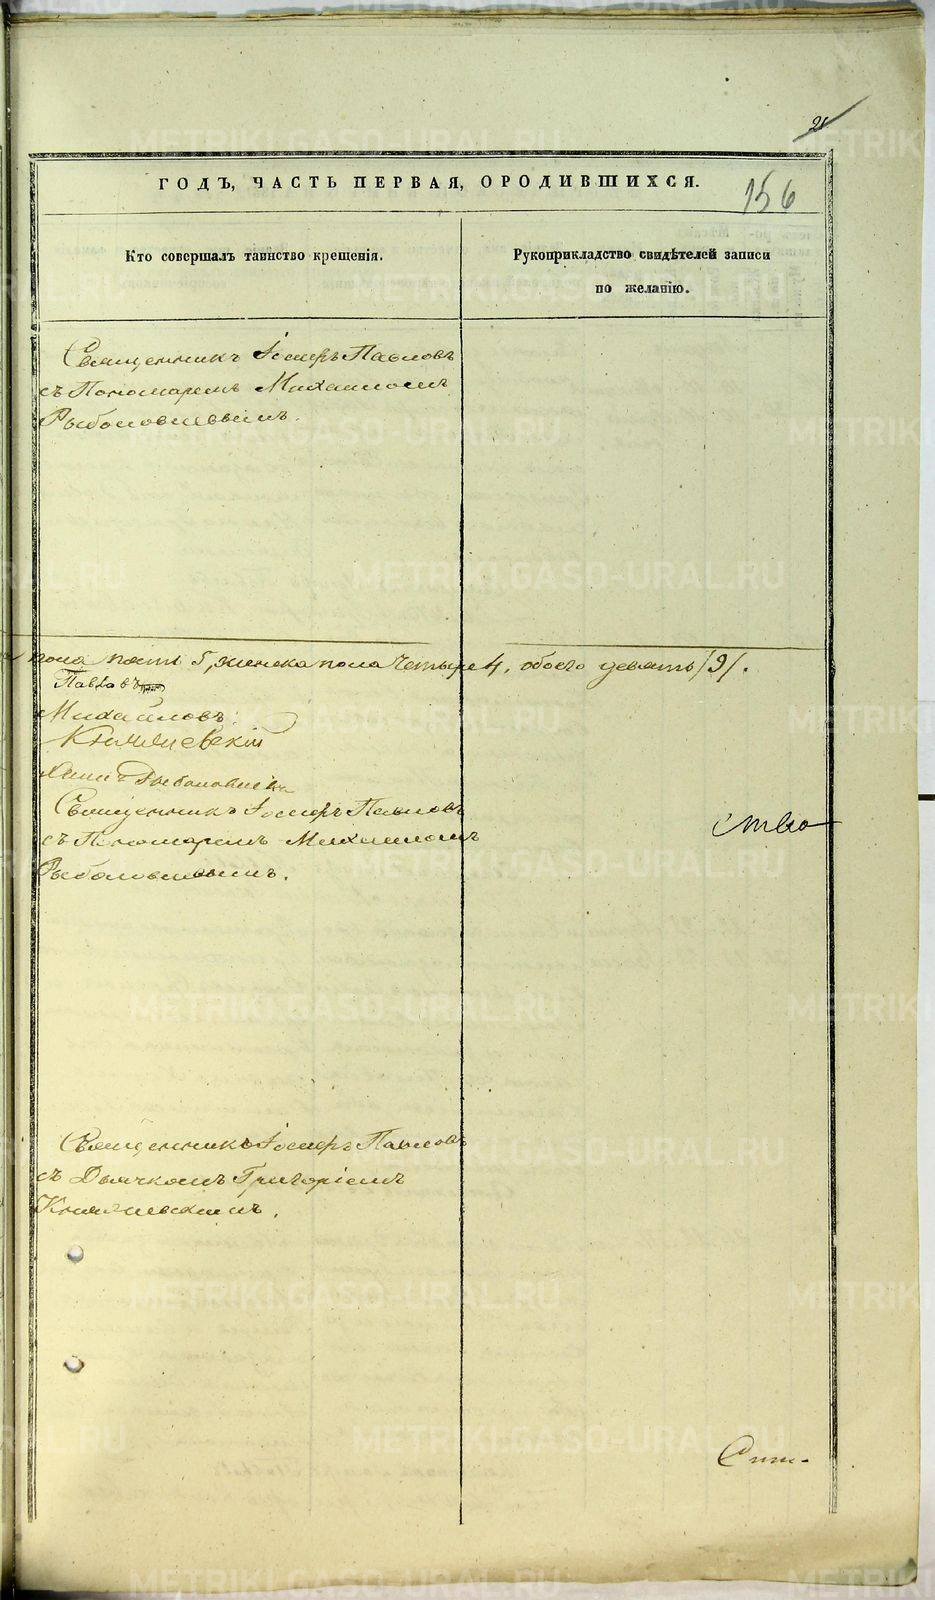 21
ГОДЪ, ЧАСТЬ ПЕРВАЯ, О РОДИВШИХСЯ.
156
Кто совершалъ таинство крещенія.
Рукоприкладство свидѣтелей записи
по желанію.
Священникъ Іосифъ Павловъ
съ Пономаремъ Михаиломъ
Рыболовлевымъ.
пола пять 5, женска пола четыре 4, обоего девять /9/.
Павловъ
Михайловъ
Княжевскій
Рыболовлевъ
Священникъ Іосифъ Павловъ
съ Пономаремъ Михаиломъ
Рыболовлевымъ.
ство
Священникъ Іосифъ Павловъ
съ Дьячкомъ Григоріемъ
METRIKI.GASO-URAL.RU